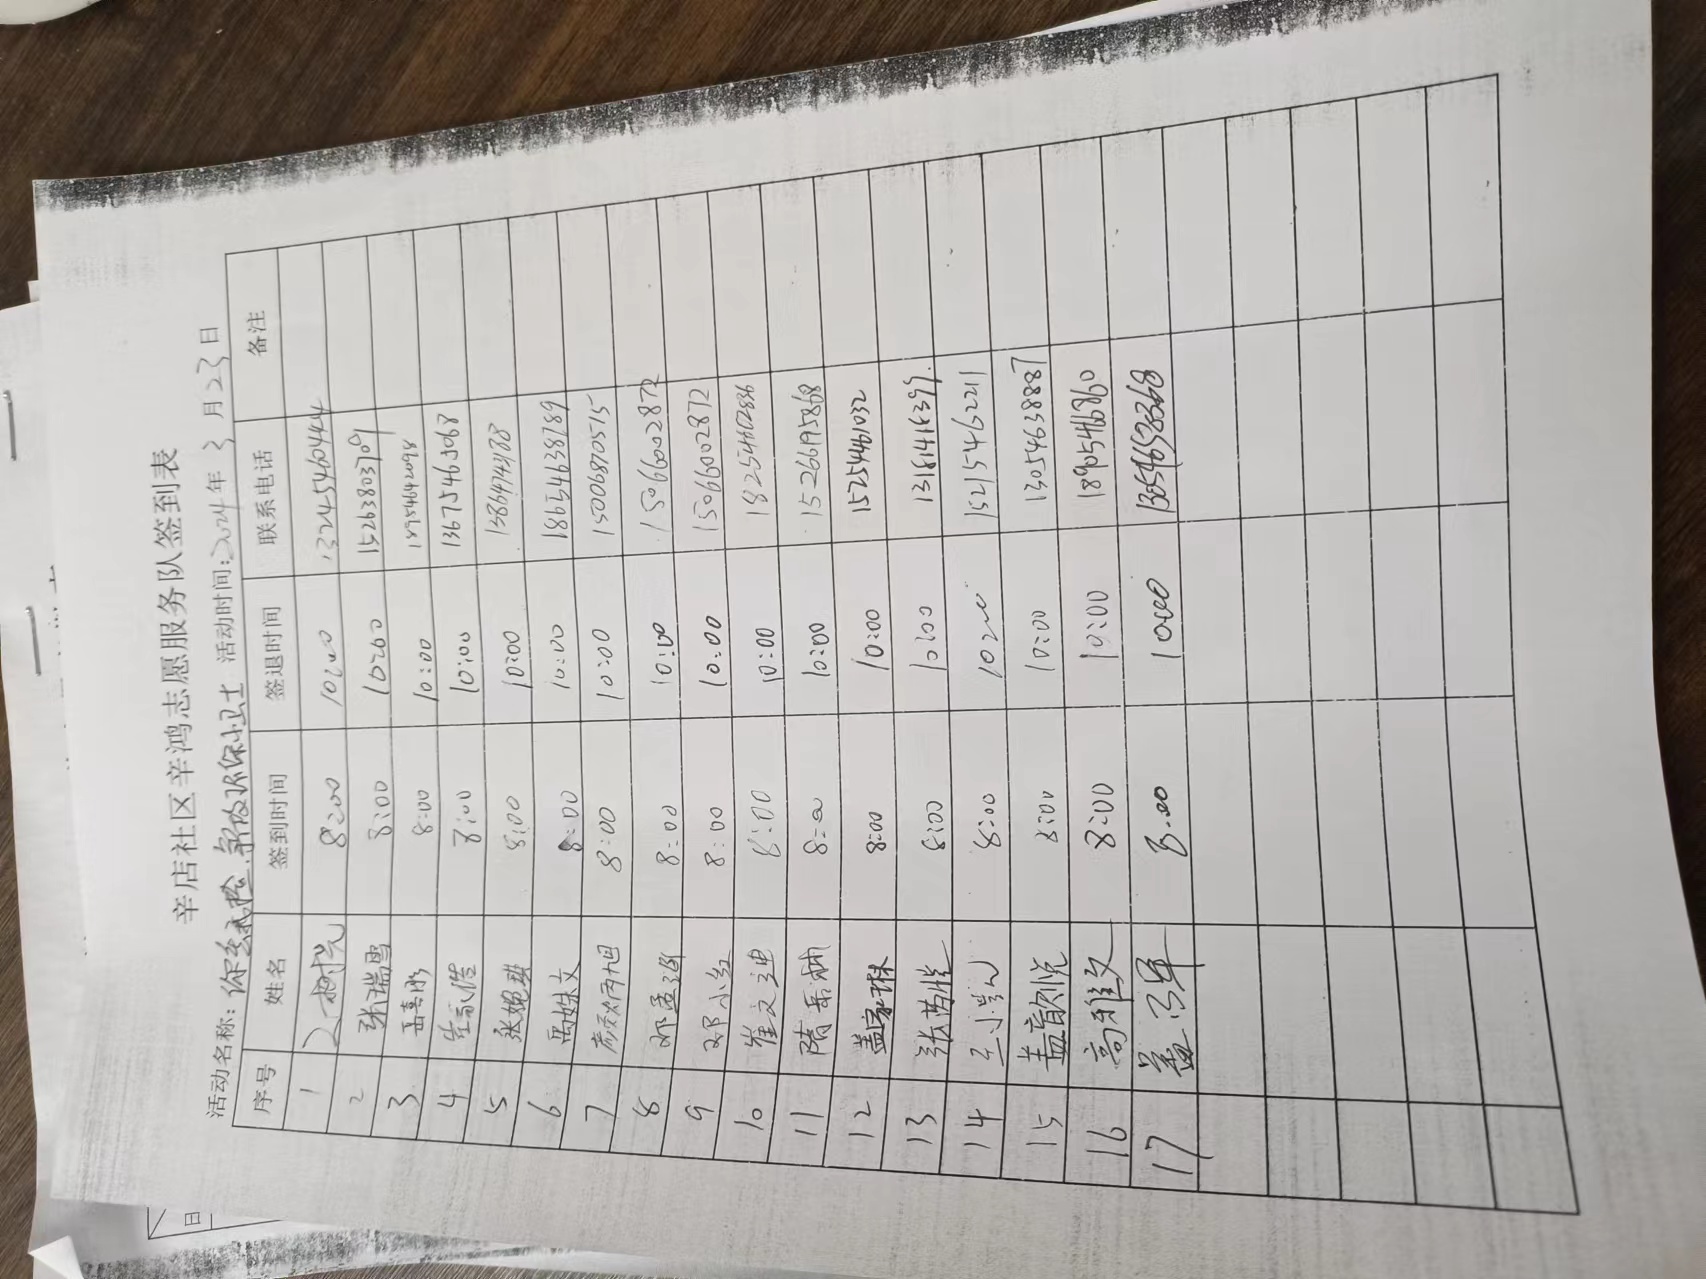 辛店社区辛鸿志愿服务队签到表
活动名称：你 争做环保小卫士 活动时间：2024年 3 月 23 日
序号 姓名 签到时间 签退时间 联系电话 备注
1 8:00 10:00 13245460444
2 张瑞雪 8:00 10:00
3 岳嘉彤 8:00 10:00
4 8:00 10:00 13675463068
5 8:00 10:00
6 禹姝文 8:00 10:00 18654638789
7 彦欣丙旭 8:00 10:00 15006870515
8 邓孟涵 8:00 10:00 15066002872
9 邓小红 8:00 10:00 15066002872
10 崔文迪 8:00 10:00 18254602886
11 隋岳琳 8:00 10:00 15266195868
12 盖家琳 8:00 10:00 15254461032
13 8:00 10:00
14 8:00 10:00 15215462211
15 盖歆悦 8:00 10:00 13054638887
16 高雅文 8:00 10:00 18905446860
17 8:00 10:00